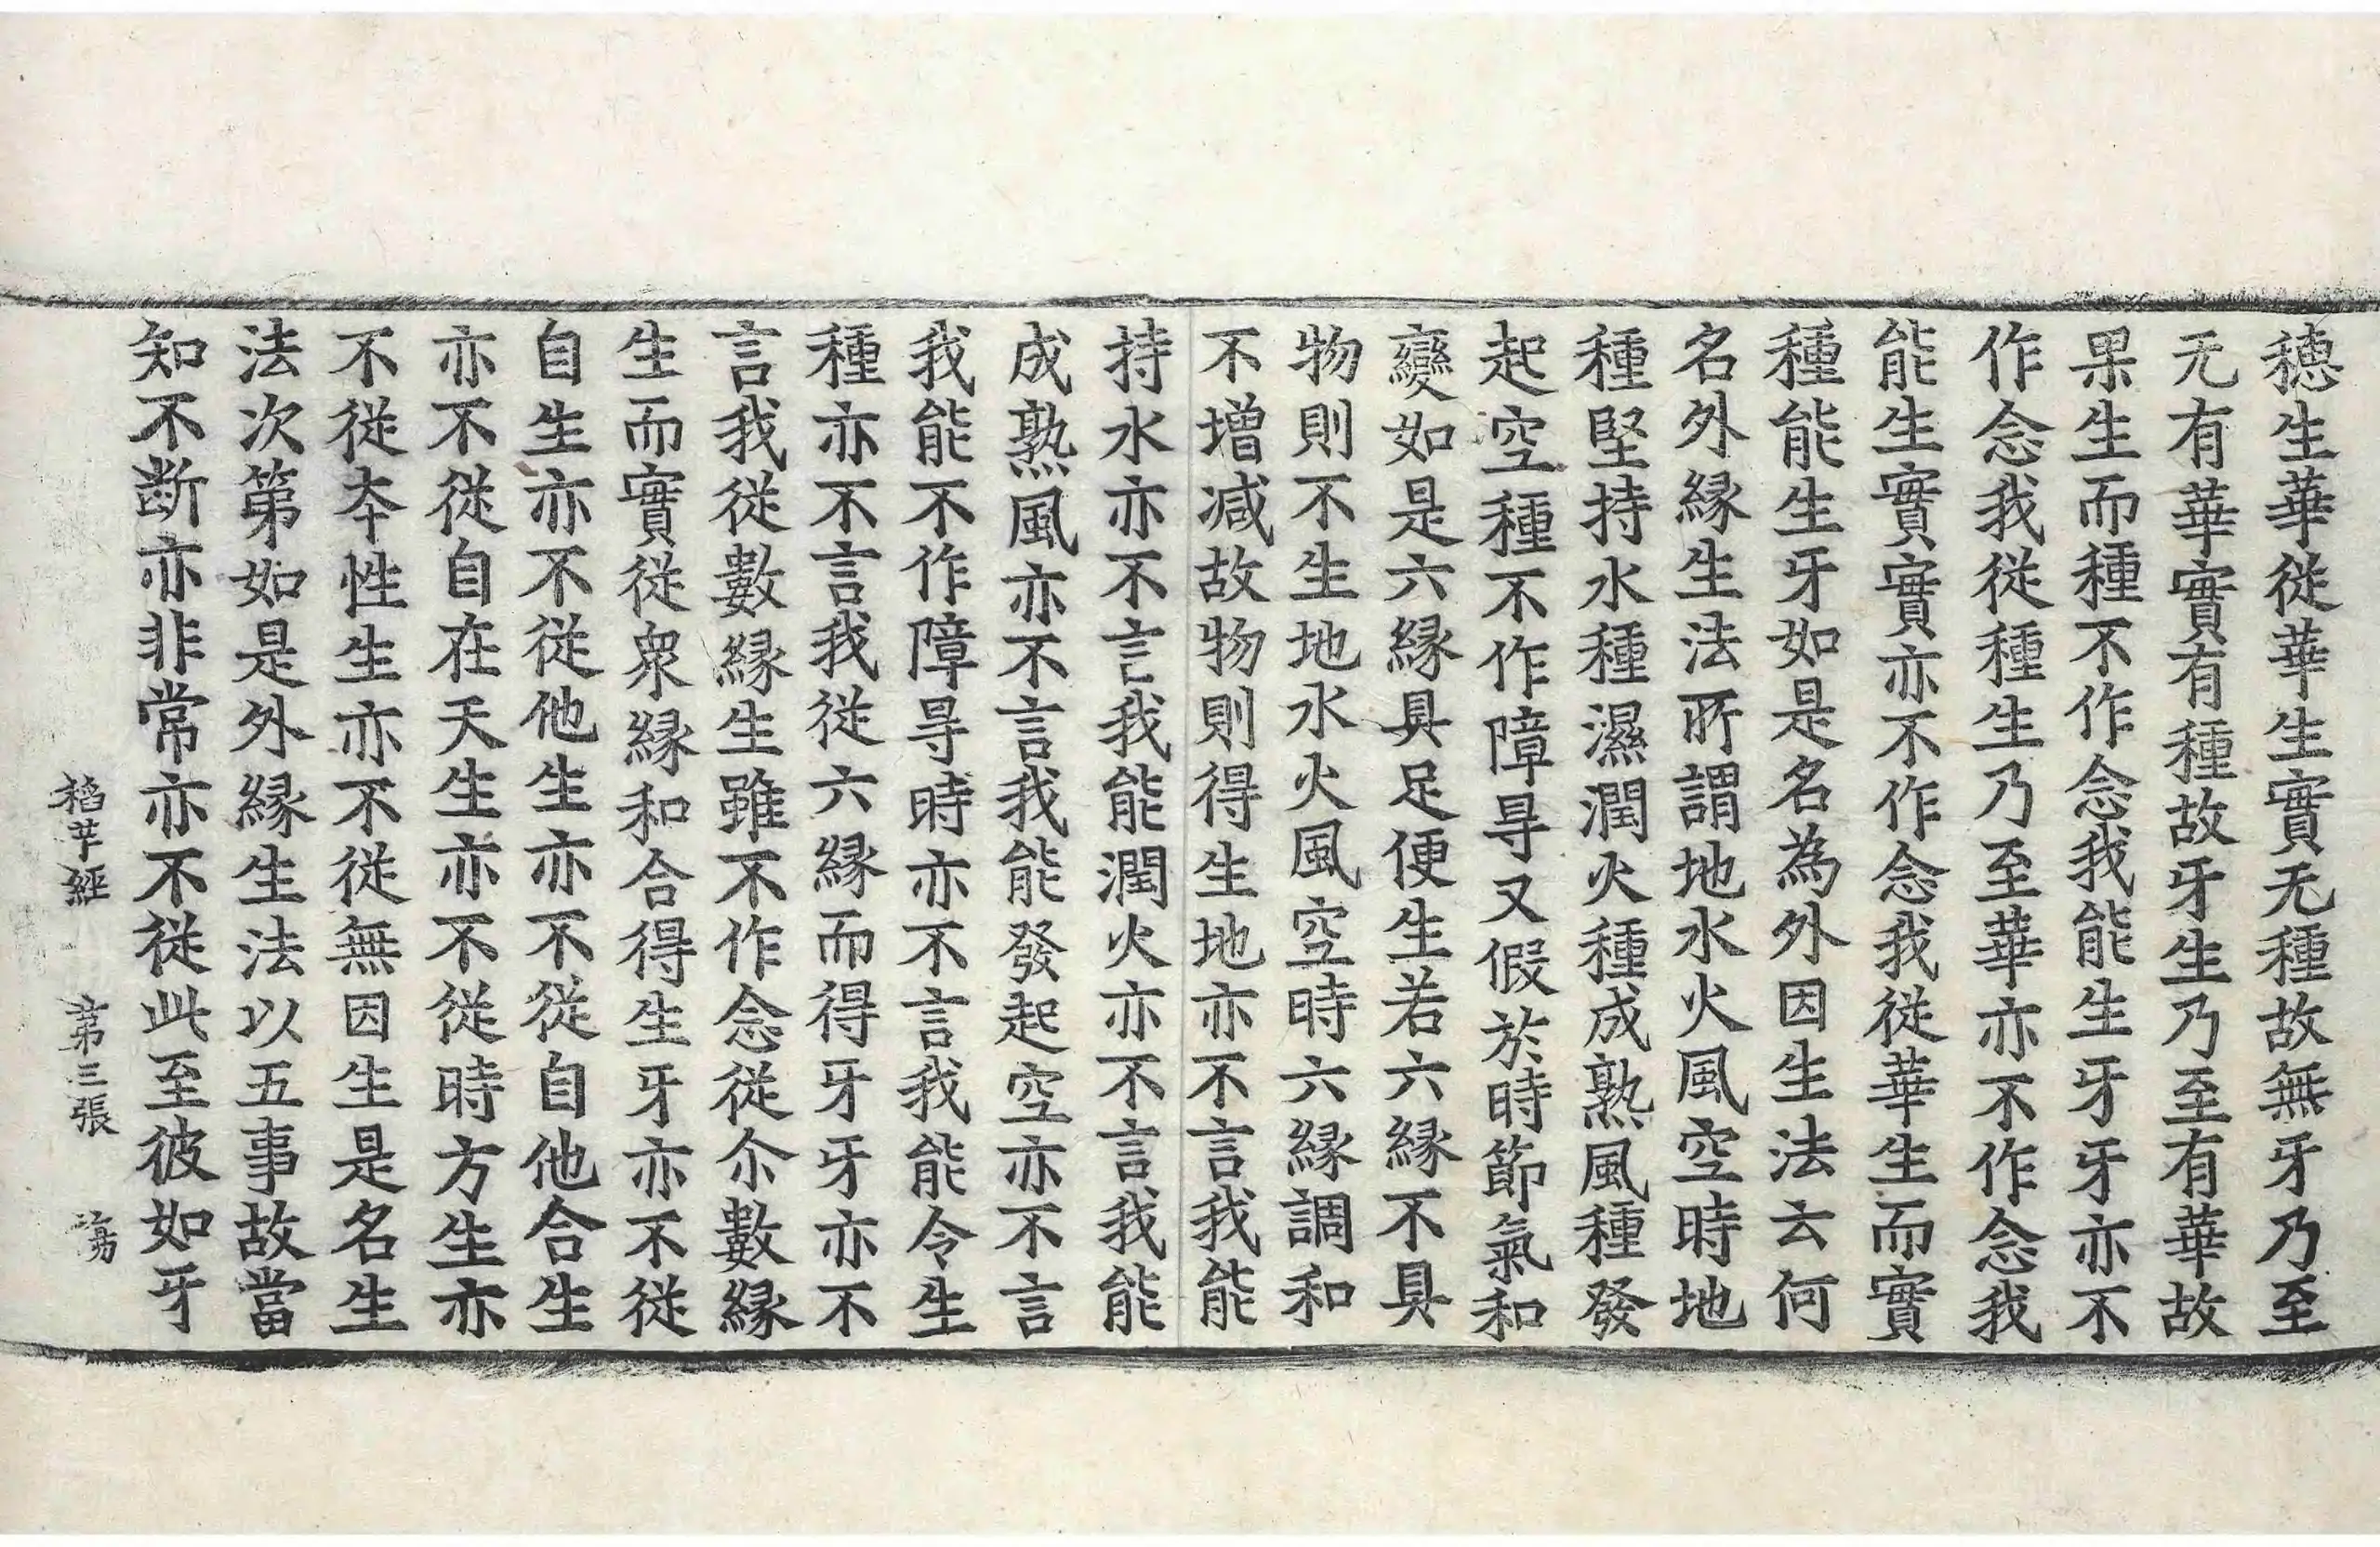 穗生華従華生實无種故無牙乃至
无有華實有種故牙生乃至有華故
果生而種不作念我能生牙牙亦不
作念我従種生乃至華亦不作念我
能生實實亦不作念我従華生而實
種能生牙如是名為外因生法云何
名外緣生法所謂地水火風空時地
種堅持水種濕潤火種成熟風種發
起空種不作障㝵又假於時節氣和
變如是六緣具足便生若六緣不具
物則不生地水火風空時六緣調和
不增減故物則得生地亦不言我能
持水亦不言我能潤火亦不言我能
成熟風亦不言我能發起空亦不言
我能不作障㝵時亦不言我能令生
種亦不言我従六緣而得牙牙亦不
言我従數緣生雖不作念従尒數緣
生而實従衆緣和合得生牙亦不従
自生亦不従他生亦不従自他合生
亦不従自在天生亦不従時方生亦
不従夲性生亦不従無因生是名生
法次第如是外緣生法以五事故當
知不断亦非常亦不従此至彼如牙
稻芉經 第三張